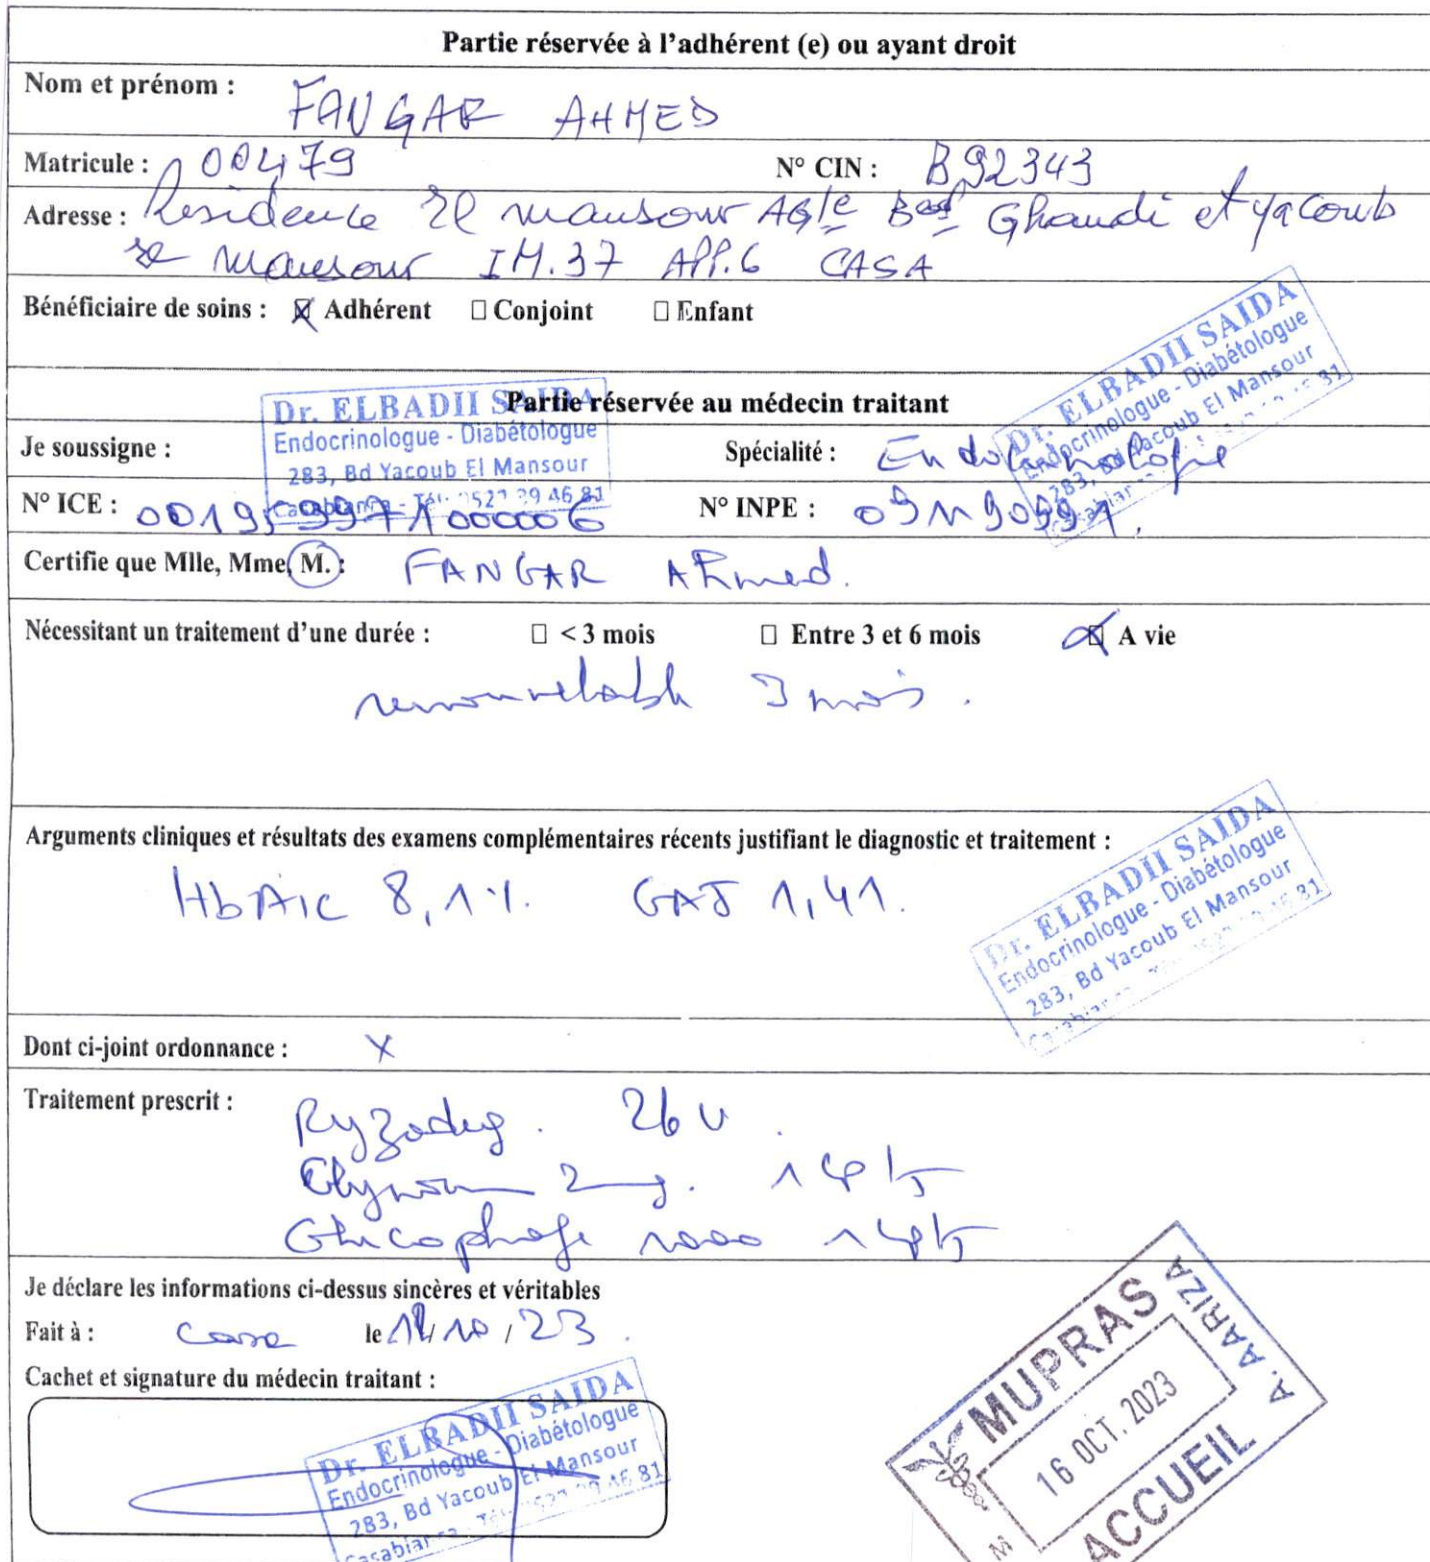 Partie réservée à l'adhérent (e) ou ayant droit
Nom et prénom : FANGAR AHMED
Matricule : 00479 N° CIN : B92343
Adresse : Residence El mansour AGle Bd Ghandi et yacoub
el mansour IM.37 APP.6 CASA
Bénéficiaire de soins : ☒ Adhérent ☐ Conjoint ☐ Enfant
Dr. ELBADII SAIDA
Endocrinologue - Diabétologue
283, Bd Yacoub El Mansour
Casablanca - Tél: 0522 39 46 81
Dr. ELBADII SAIDA
Endocrinologue - Diabétologue
283, Bd Yacoub El Mansour
Partie réservée au médecin traitant
Je soussigne : Spécialité : Endocrinologie
N° ICE : N° INPE :
Certifie que Mlle, Mme, M. : FANGAR Ahmed.
Nécessitant un traitement d'une durée : ☐ < 3 mois ☐ Entre 3 et 6 mois ☒ A vie
renouvelable 3 mois.
Arguments cliniques et résultats des examens complémentaires récents justifiant le diagnostic et traitement :
HbA1c 8,1%. GAJ 1,41.
Dr. ELBADII SAIDA
Endocrinologue - Diabétologue
283, Bd Yacoub El Mansour
Dont ci-joint ordonnance : X
Traitement prescrit : Ryzodeg. 26 U.
2mg. 1 cp/j
Glucophage 1000 1 cp/j
Je déclare les informations ci-dessus sincères et véritables
Fait à : Casa le /10/23.
Cachet et signature du médecin traitant :
Dr. ELBADII SAIDA
Endocrinologue - Diabétologue
283, Bd Yacoub El Mansour
MUPRAS
16 OCT. 2023
ACCUEIL
A. AARIZA